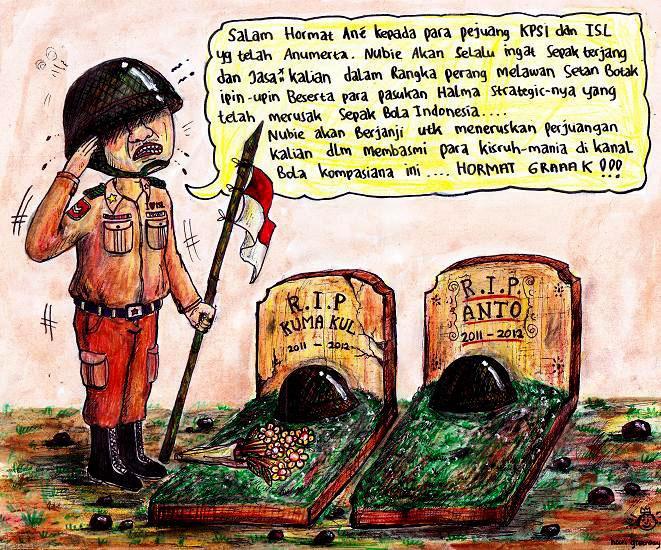 Salam Hormat Ané kepada para pejuang KPSI dan ISL
yg telah Anumerta. Nubie Akan Selalu ingat Sepak terjang
dan Jasa² kalian dalam Rangka perang melawan Setan Botak
ipin-upin Beserta para pasukan Halma Strategic-nya yang
telah merusak Sepak Bola Indonesia....
Nubie akan Berjanji utk meneruskan perjuangan
kalian dlm membasmi para kisruh-mania di kanal
Bola kompasiana ini .... HORMAT GRAAAK !!!
I ♥ ISL
R.I.P
KUMA KUL
2011 - 2012
R.I.P.
ANTO
2011 - 2012